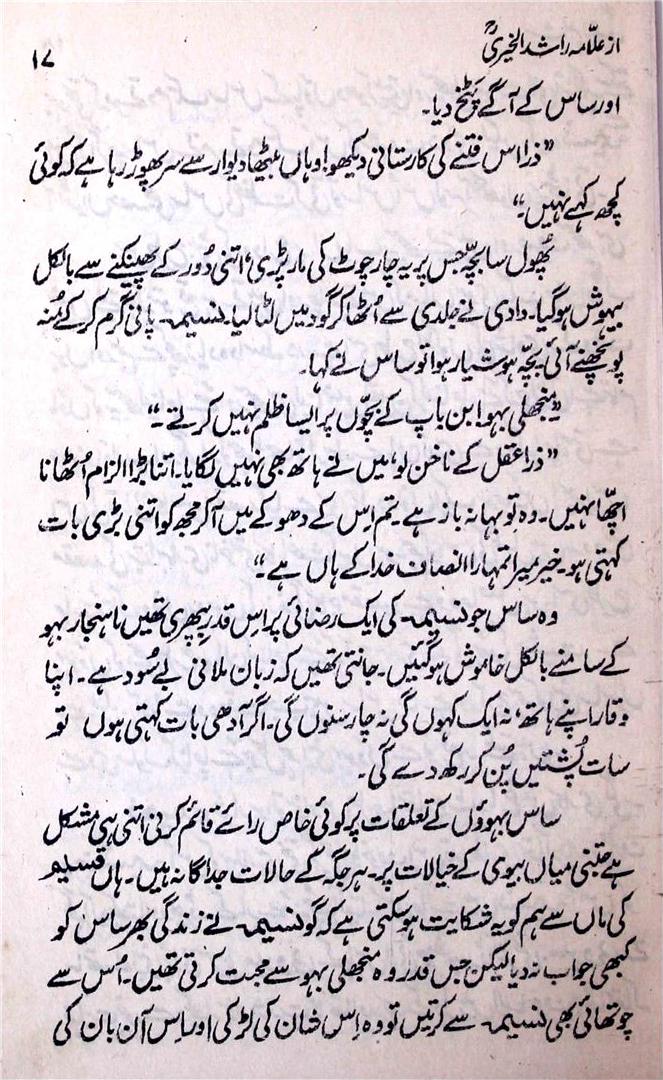 از علّامہ راشد الخیریؒ
۱۷
اور ساس کے آگے پٹخ دیا۔
”ذرا اس فتنے کی کارستانی دیکھو! وہاں بیٹھا دیوار سے سر پھوڑ رہا ہے کہ کوئی
کچھ کہے نہیں۔“
پھُول سا بچّہ جس پر یہ چار چوٹ کی مار پڑی، اتنی دُور کے پھینکنے سے بالکل
بیہوش ہوگیا۔ دادی نے جلدی سے اُٹھا کر گود میں لٹا لیا۔ نسیمہ پانی گرم کرکے مُنہ
پونچھنے آئی بچّہ ہوشیار ہوا تو ساس نے کہا۔
”منجھلی بہو! بن باپ کے بچّوں پر ایسا ظلم نہیں کرتے۔“
”ذرا عقل کے ناخن لو، میں نے ہاتھ بھی نہیں لگایا۔ اتنا بڑا الزام اُٹھانا
اچھّا نہیں۔ وہ تو بہانہ باز ہے۔ تم اِس کے دھوکے میں آکر مجھ کو اتنی بڑی بات
کہتی ہو۔ خیر میرا تمہارا انصاف خدا کے ہاں ہے“
وہ ساس جو نسیمہ کی ایک رضائی پر اِس قدر بپھری تھیں ناہنجار بہو
کے سامنے بالکل خاموش ہوگئیں۔ جانتی تھیں کہ زبان ملانی بے سُود ہے۔ اپنا
وقار اپنے ہاتھ، نہ ایک کہوں گی نہ چار سنوں گی۔ اگر آدھی بات کہتی ہوں تو
سات پُشتیں پُن کر رکھ دے گی۔
ساس بہوؤں کے تعلقات پر کوئی خاص رائے قائم کرنی اتنی ہی مشکل
ہے جتنی میاں بیوی کے خیالات پر۔ ہر جگہ کے حالات جداگانہ ہیں۔ ہاں قسیم
کی ماں سے ہم کو یہ شکایت ہوسکتی ہے کہ گو نسیمہ نے زندگی بھر ساس کو
کبھی جواب نہ دیا لیکن جس قدر وہ منجھلی بہو سے محبت کرتی تھیں۔ اُس سے
چوتھائی بھی نسیمہ سے کرتیں تو وہ اِس شان کی لڑکی اور اِس آن بان کی